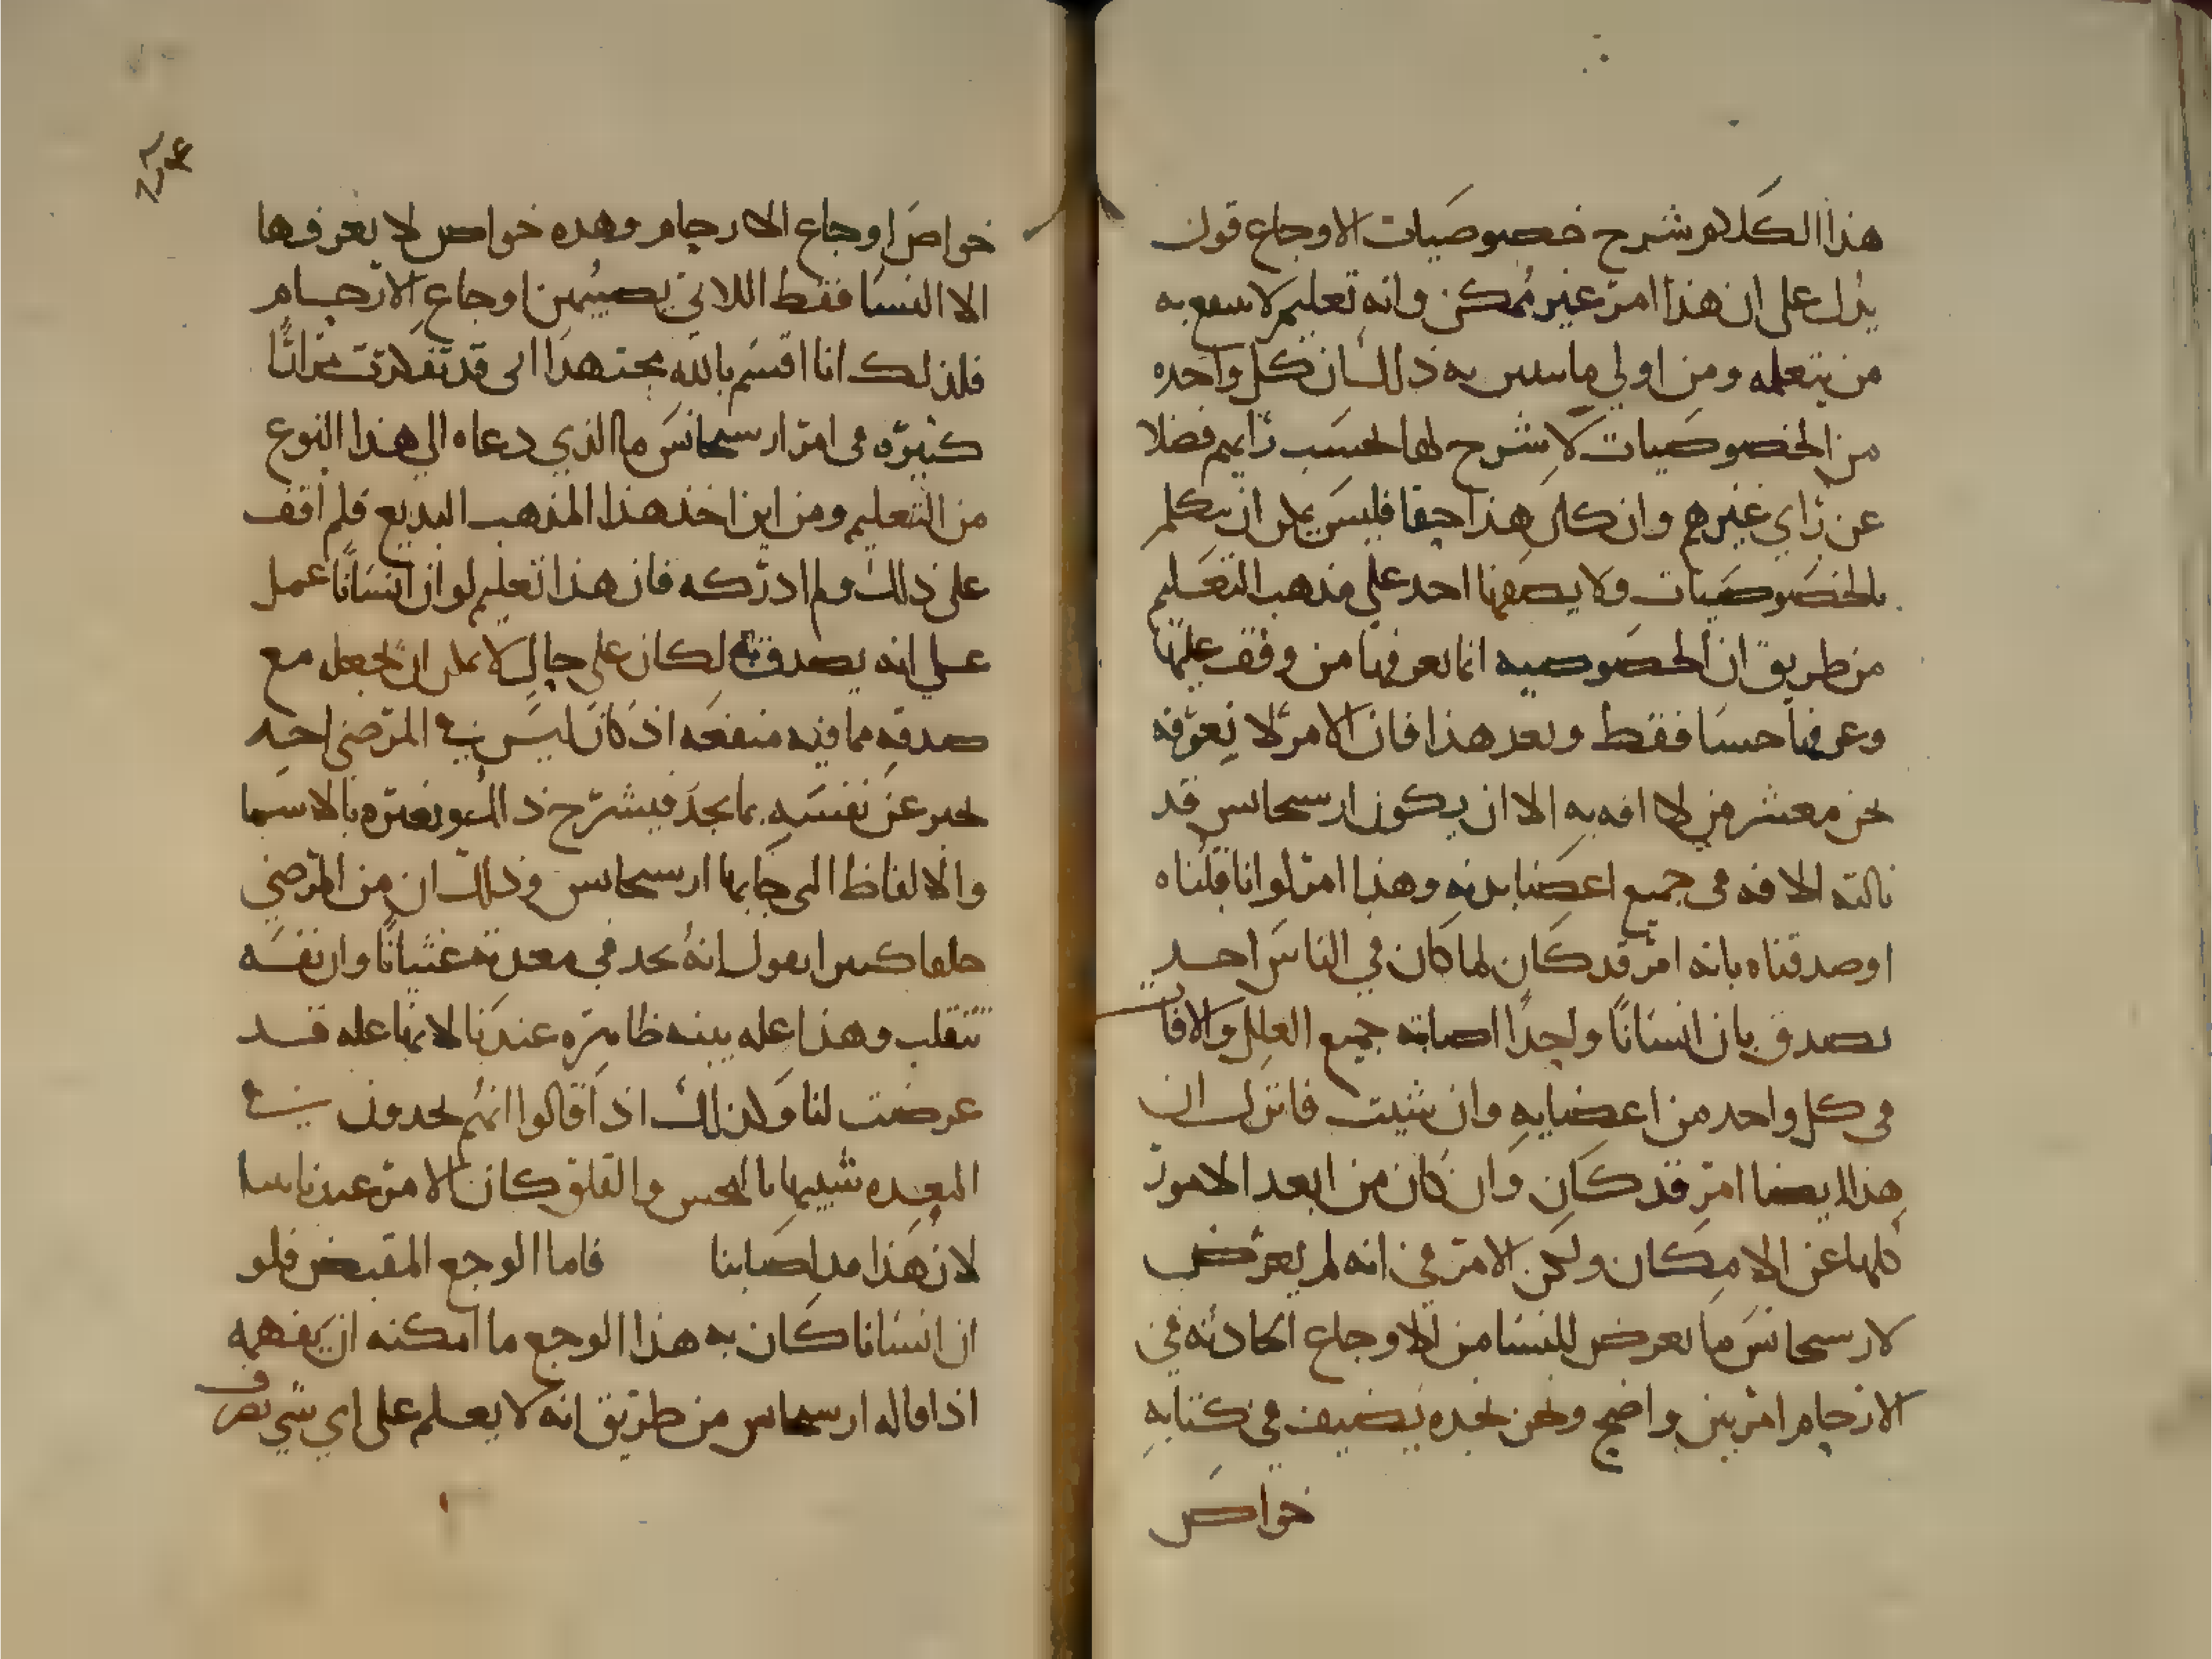 هذا الكلام شرح خصوصيات الاوجاع قول
يدل على ان هذا امر غير ممكن وانه تعليم لا ينتفع به
من يتعلمه ومن اولي ما يبين به ذلك ان كل واحده
من الخصوصيات لا شرح لها بحسب رايهم فضلا
عن راي غيرهم وان كان هذا حقا فليس يمكن ان يتكلم
بالخصوصيات ولا يصفها احد على مذهب التعليم
من طريق ان الخصوصيه انما يعرفها من وقف عليها
وعرفها حسا فقط وبعد هذا فان الامر لا نعرفه
نحن معشر من لا افه به الا ان يكون ارسجانس قد
نالته الافه في جميع اعضا بدنه وهذا امر لو انا قلناه
او صدقناه بانه امر قد كان لما كان في الناس احد
يصدق بان انسانا واحدا اصابته جميع العلل والافات
في كل واحد من اعضايه وان شيت فانزل ان
هذا ايضا امر قد كان وان كان من ابعد الامور
كلها عن الامكان ولكن الامر في انه لم يعرض
لارسجانس ما يعرض للنسا من الاوجاع الحادثه في
الارحام امر بين واضح ونحن نجده يضيف في كتابه
خواص
خواص اوجاع الارحام وهذه خواص لا يعرفها
الا النسا فقط اللاتي يصيبهن اوجاع الارحام
فلذلك انا اقسم بالله مجتهدا اني قد تفكرت مرارا
كثيره في امر ارسجانس ما الذي دعاه الي هذا النوع
من التعليم ومن اين اخذ هذا المذهب البديع فلم اقف
على ذلك ولم ادركه فان هذا تعليم لو ان انسانا عمل
علي انه يصدق به لكان على حال لا يمكن ان يجعله مع
صدقه مما فيه منفعه اذ كان ليس في المرضي احد
يخبر عن نفسه بما يجد فيشرح ذلك ويعبره بالاسما
والالفاظ التي جا بها ارسجانس وذلك ان من المرضي
خلقا كثيرا يقول انه يجد في معدته غثيانا وان نفسه
تتقلب وهذا عله بينه ظاهره عندنا لانها عله قد
عرضت لنا ولذلك اذا قالوا انهم يجدون في
المعده شبيها بالنخس والقلق كان الامر عندنا بينا
لان هذا قد اصابنا فاما الوجع المقبض فلو
ان انسانا كان به هذا الوجع ما امكنه ان يفهمه
اذا قاله ارسجانس من طريق انه لا يعلم على اي شي تصرف